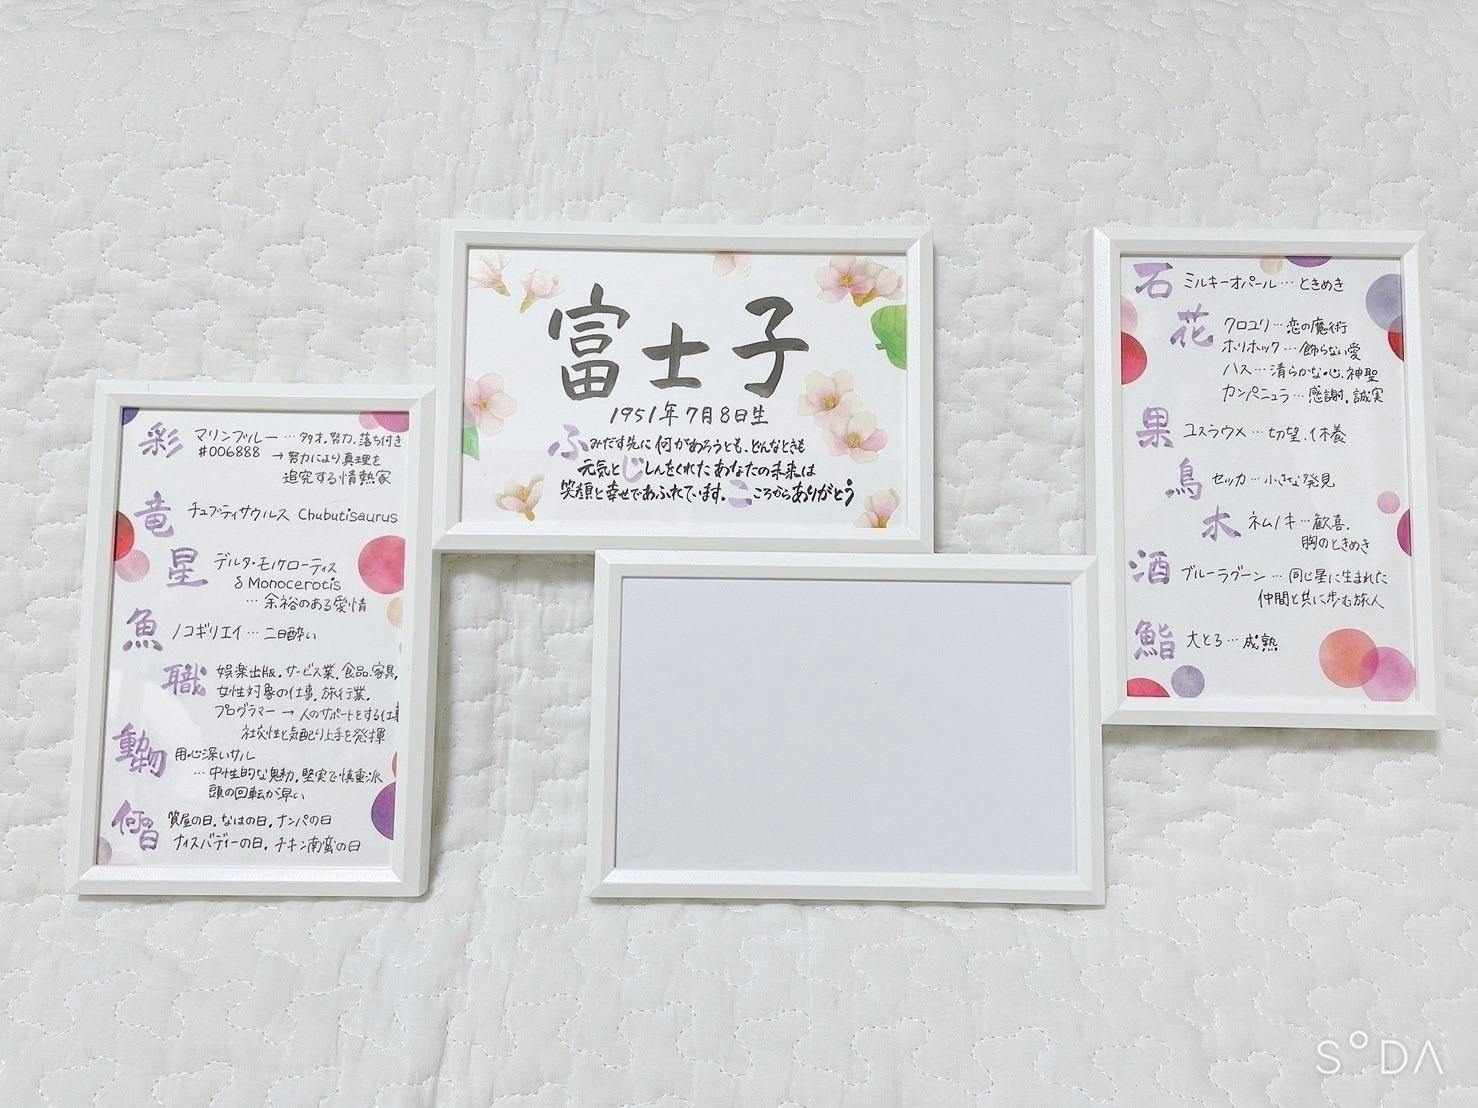 彩 マリンブルー…多才、努力、落ち付き
#006888 →努力により真理を
追究する情熱家
竜 チュブティサウルス Chubutisaurus
星 デルタ・モノケローティス
δMonocerotis
…余裕のある愛情
魚 ノコギリエイ…二日酔い
職 娯楽出版、サービス業、食品、家具、
女性対象の仕事、旅行業、
プログラマー → 人のサポートをする仕事
社交性と気配り上手を発揮
動物 用心深いサル
…中性的な魅力、堅実で慎重派
頭の回転が早い
何の日 質屋の日、なはの日、ナンパの日
ナイスバディーの日、チキン南蛮の日
富士子
1951年7月8日生
ふみだす先に何があろうとも、どんなときも
元気とじしんをくれたあなたの未来は
笑顔と幸せであふれています。こころからありがとう
石 ミルキーオパール…ときめき
花 クロユリ…恋の魔術
ホリホック…飾らない愛
ハス…清らかな心、神聖
カンパニュラ…感謝、誠実
果 ユスラウメ…切望、休養
鳥 セッカ…小さな発見
木 ネムノキ…歓喜、
胸のときめき
酒 ブルーラグーン…同じ星に生まれた
仲間と共に歩む旅人
鮨 大とろ…成熟
SODA